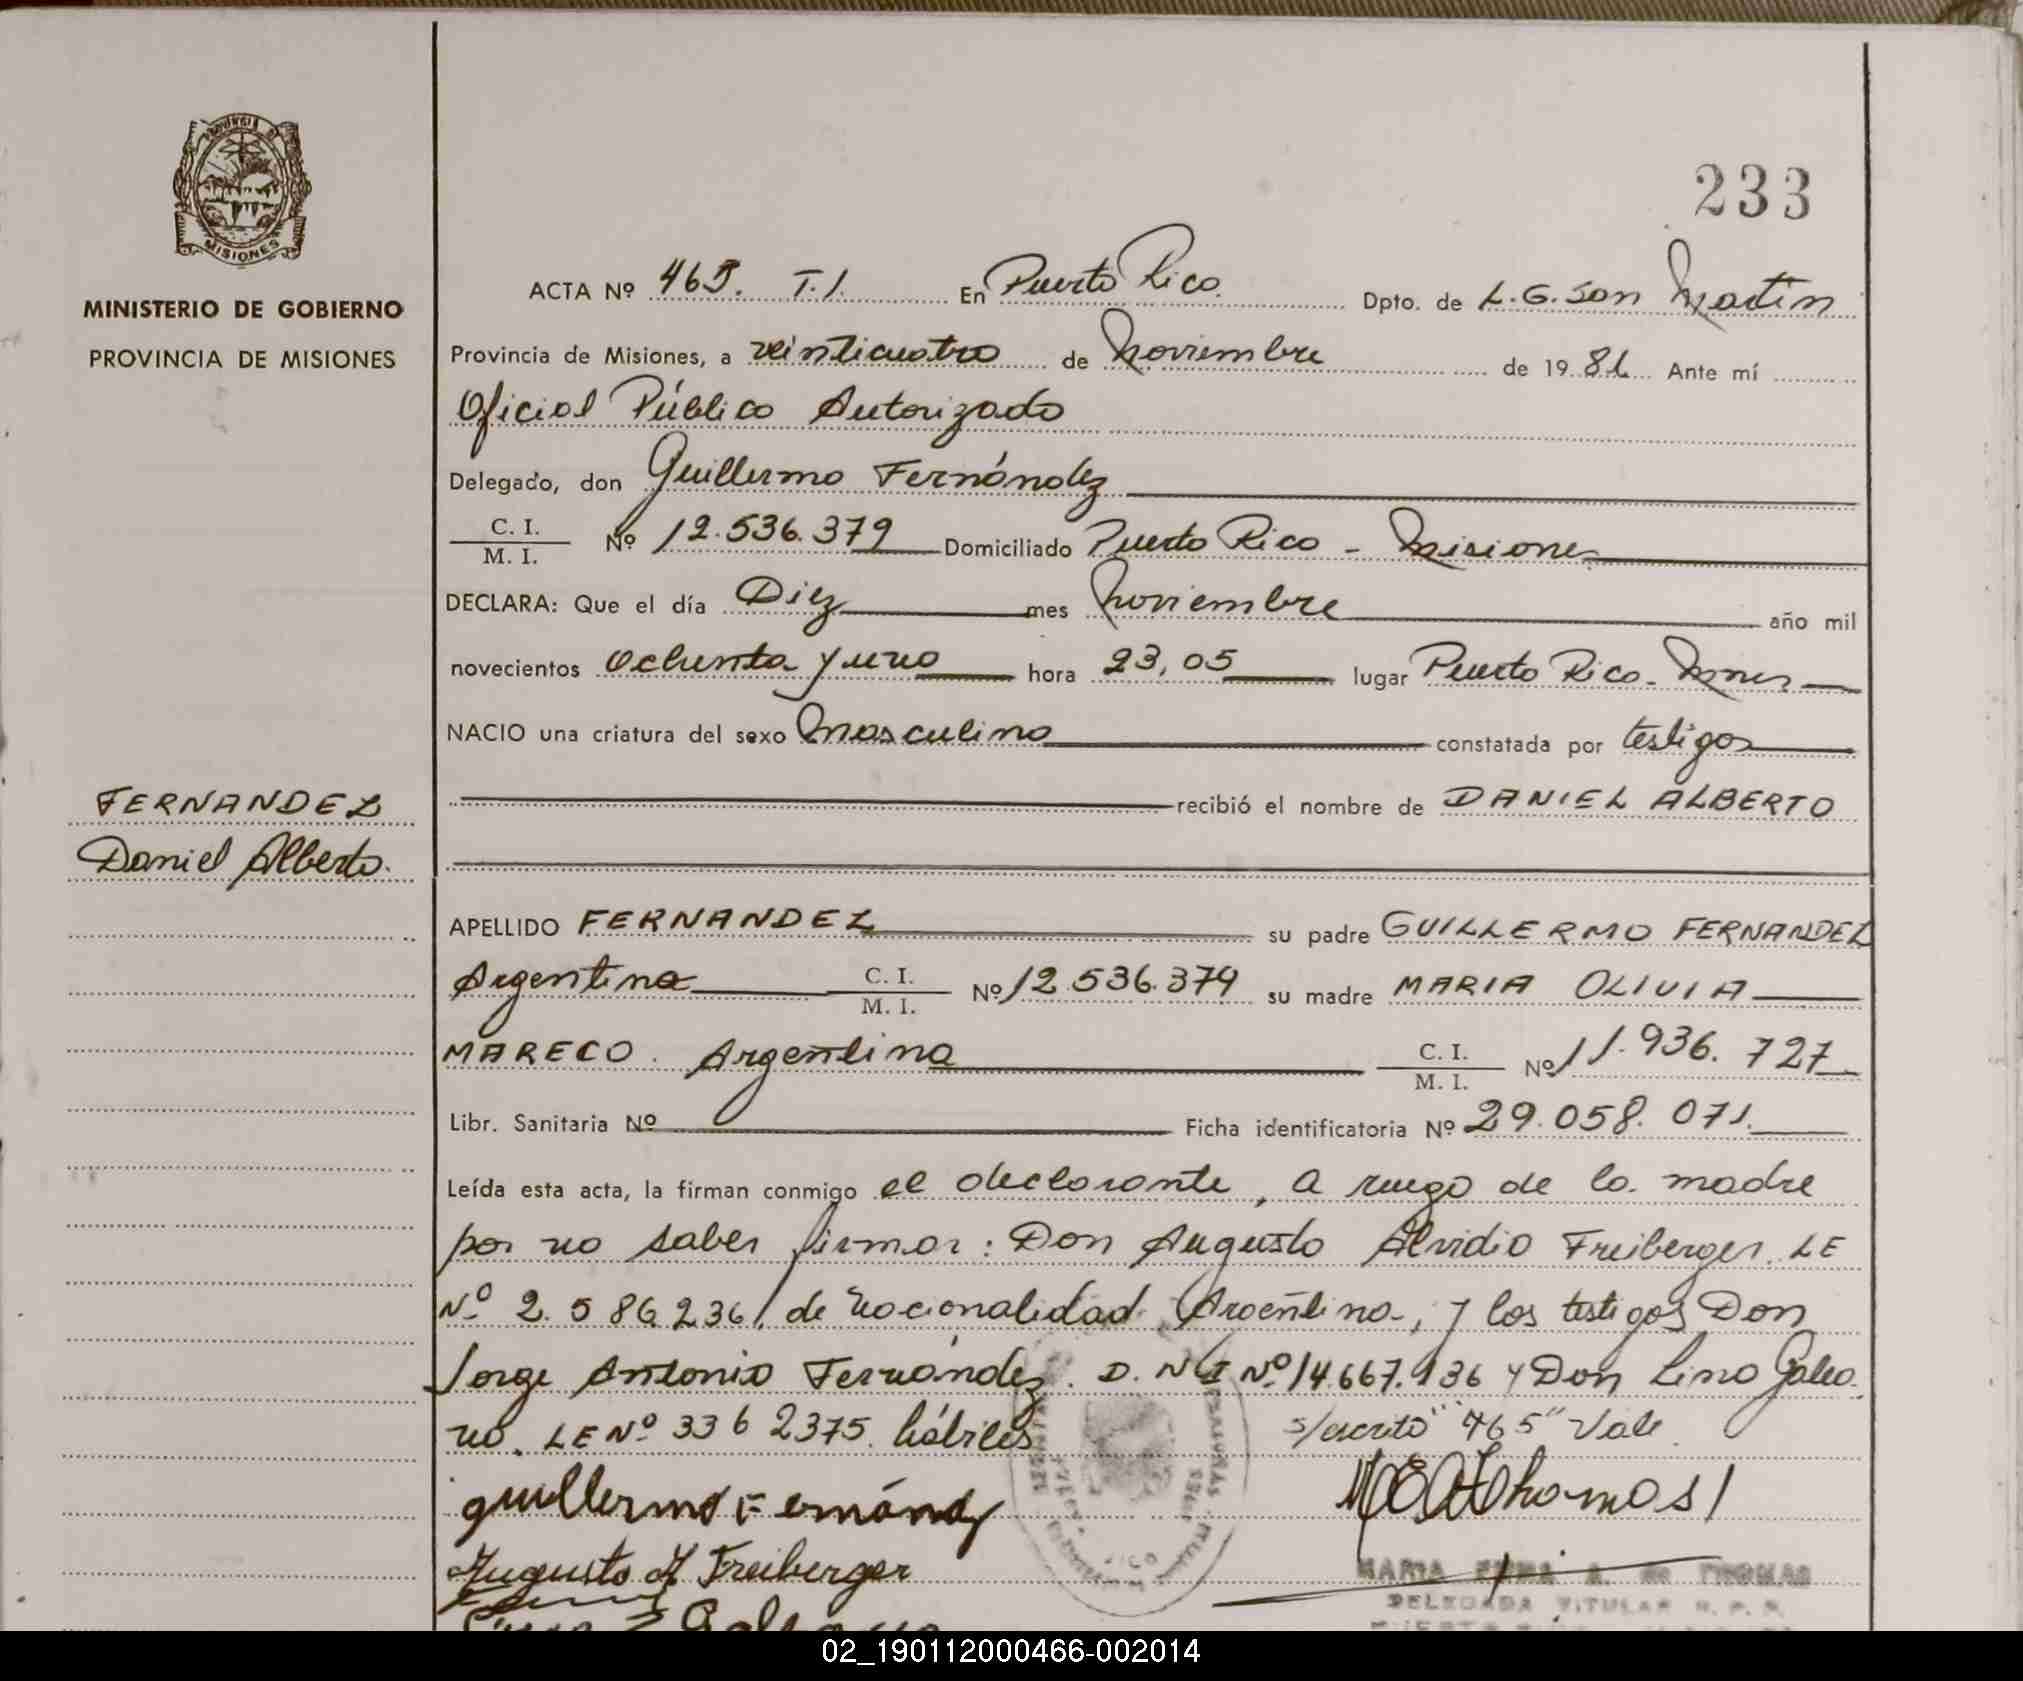 233
PROVINCIA DE
MISIONES
MINISTERIO DE GOBIERNO
PROVINCIA DE MISIONES
ACTA Nº 465. T.I. En Puerto Rico. Dpto. de L.G. San Martín
Provincia de Misiones, a veinticuatro de Noviembre de 19 81 Ante mí
Oficial Público Autorizado
Delegado, don Guillermo Fernández
C. I. / M. I. Nº 12.536.379 Domiciliado Puerto Rico - Misiones
DECLARA: Que el día Diez mes Noviembre año mil
novecientos ochenta y uno hora 23,05 lugar Puerto Rico. Mnes
NACIO una criatura del sexo Masculino constatada por testigos
recibió el nombre de DANIEL ALBERTO
FERNANDEZ
Daniel Alberto.
APELLIDO FERNANDEZ su padre GUILLERMO FERNANDEZ
Argentina C. I. / M. I. Nº 12.536.379 su madre MARIA OLIVIA
MARECO. Argentina C. I. / M. I. Nº 11.936.727
Libr. Sanitaria Nº Ficha identificatoria Nº 29.058.071.
Leída esta acta, la firman conmigo el declarante, a ruego de la madre
por no saber firmar: Don Augusto Alvidio Freiberger. LE
Nº 2.586236/ de nacionalidad Argentina, y los testigos Don
Jorge Antonio Fernández. D.N.I Nº 14.667.136 y Don Lino Galea
no. LE Nº 3362375. hábiles s/escrito "465" Vale.
guillermo Fernández
Augusto A Freiberger
MARIA A. de THOMAS
DELEGADA TITULAR R. P. P.
02_190112000466-002014